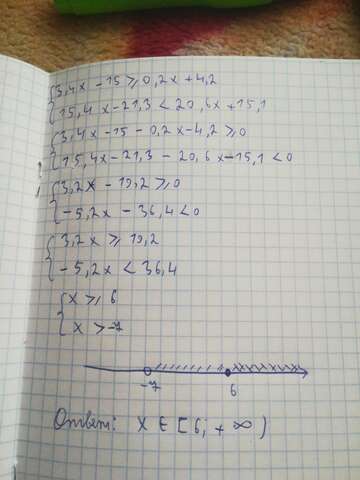 {3,4x - 15 ⩾ 0,2x + 4,2
{15,4x - 21,3 < 20,6x + 15,1
{3,4x - 15 - 0,2x - 4,2 ⩾ 0
{15,4x - 21,3 - 20,6x - 15,1 < 0
{3,2x - 19,2 ⩾ 0
{-5,2x - 36,4 < 0
{3,2x ⩾ 19,2
{-5,2x < 36,4
{x ⩾ 6
{x > -7
-7 6
Ответ: x ∈ [6; +∞)